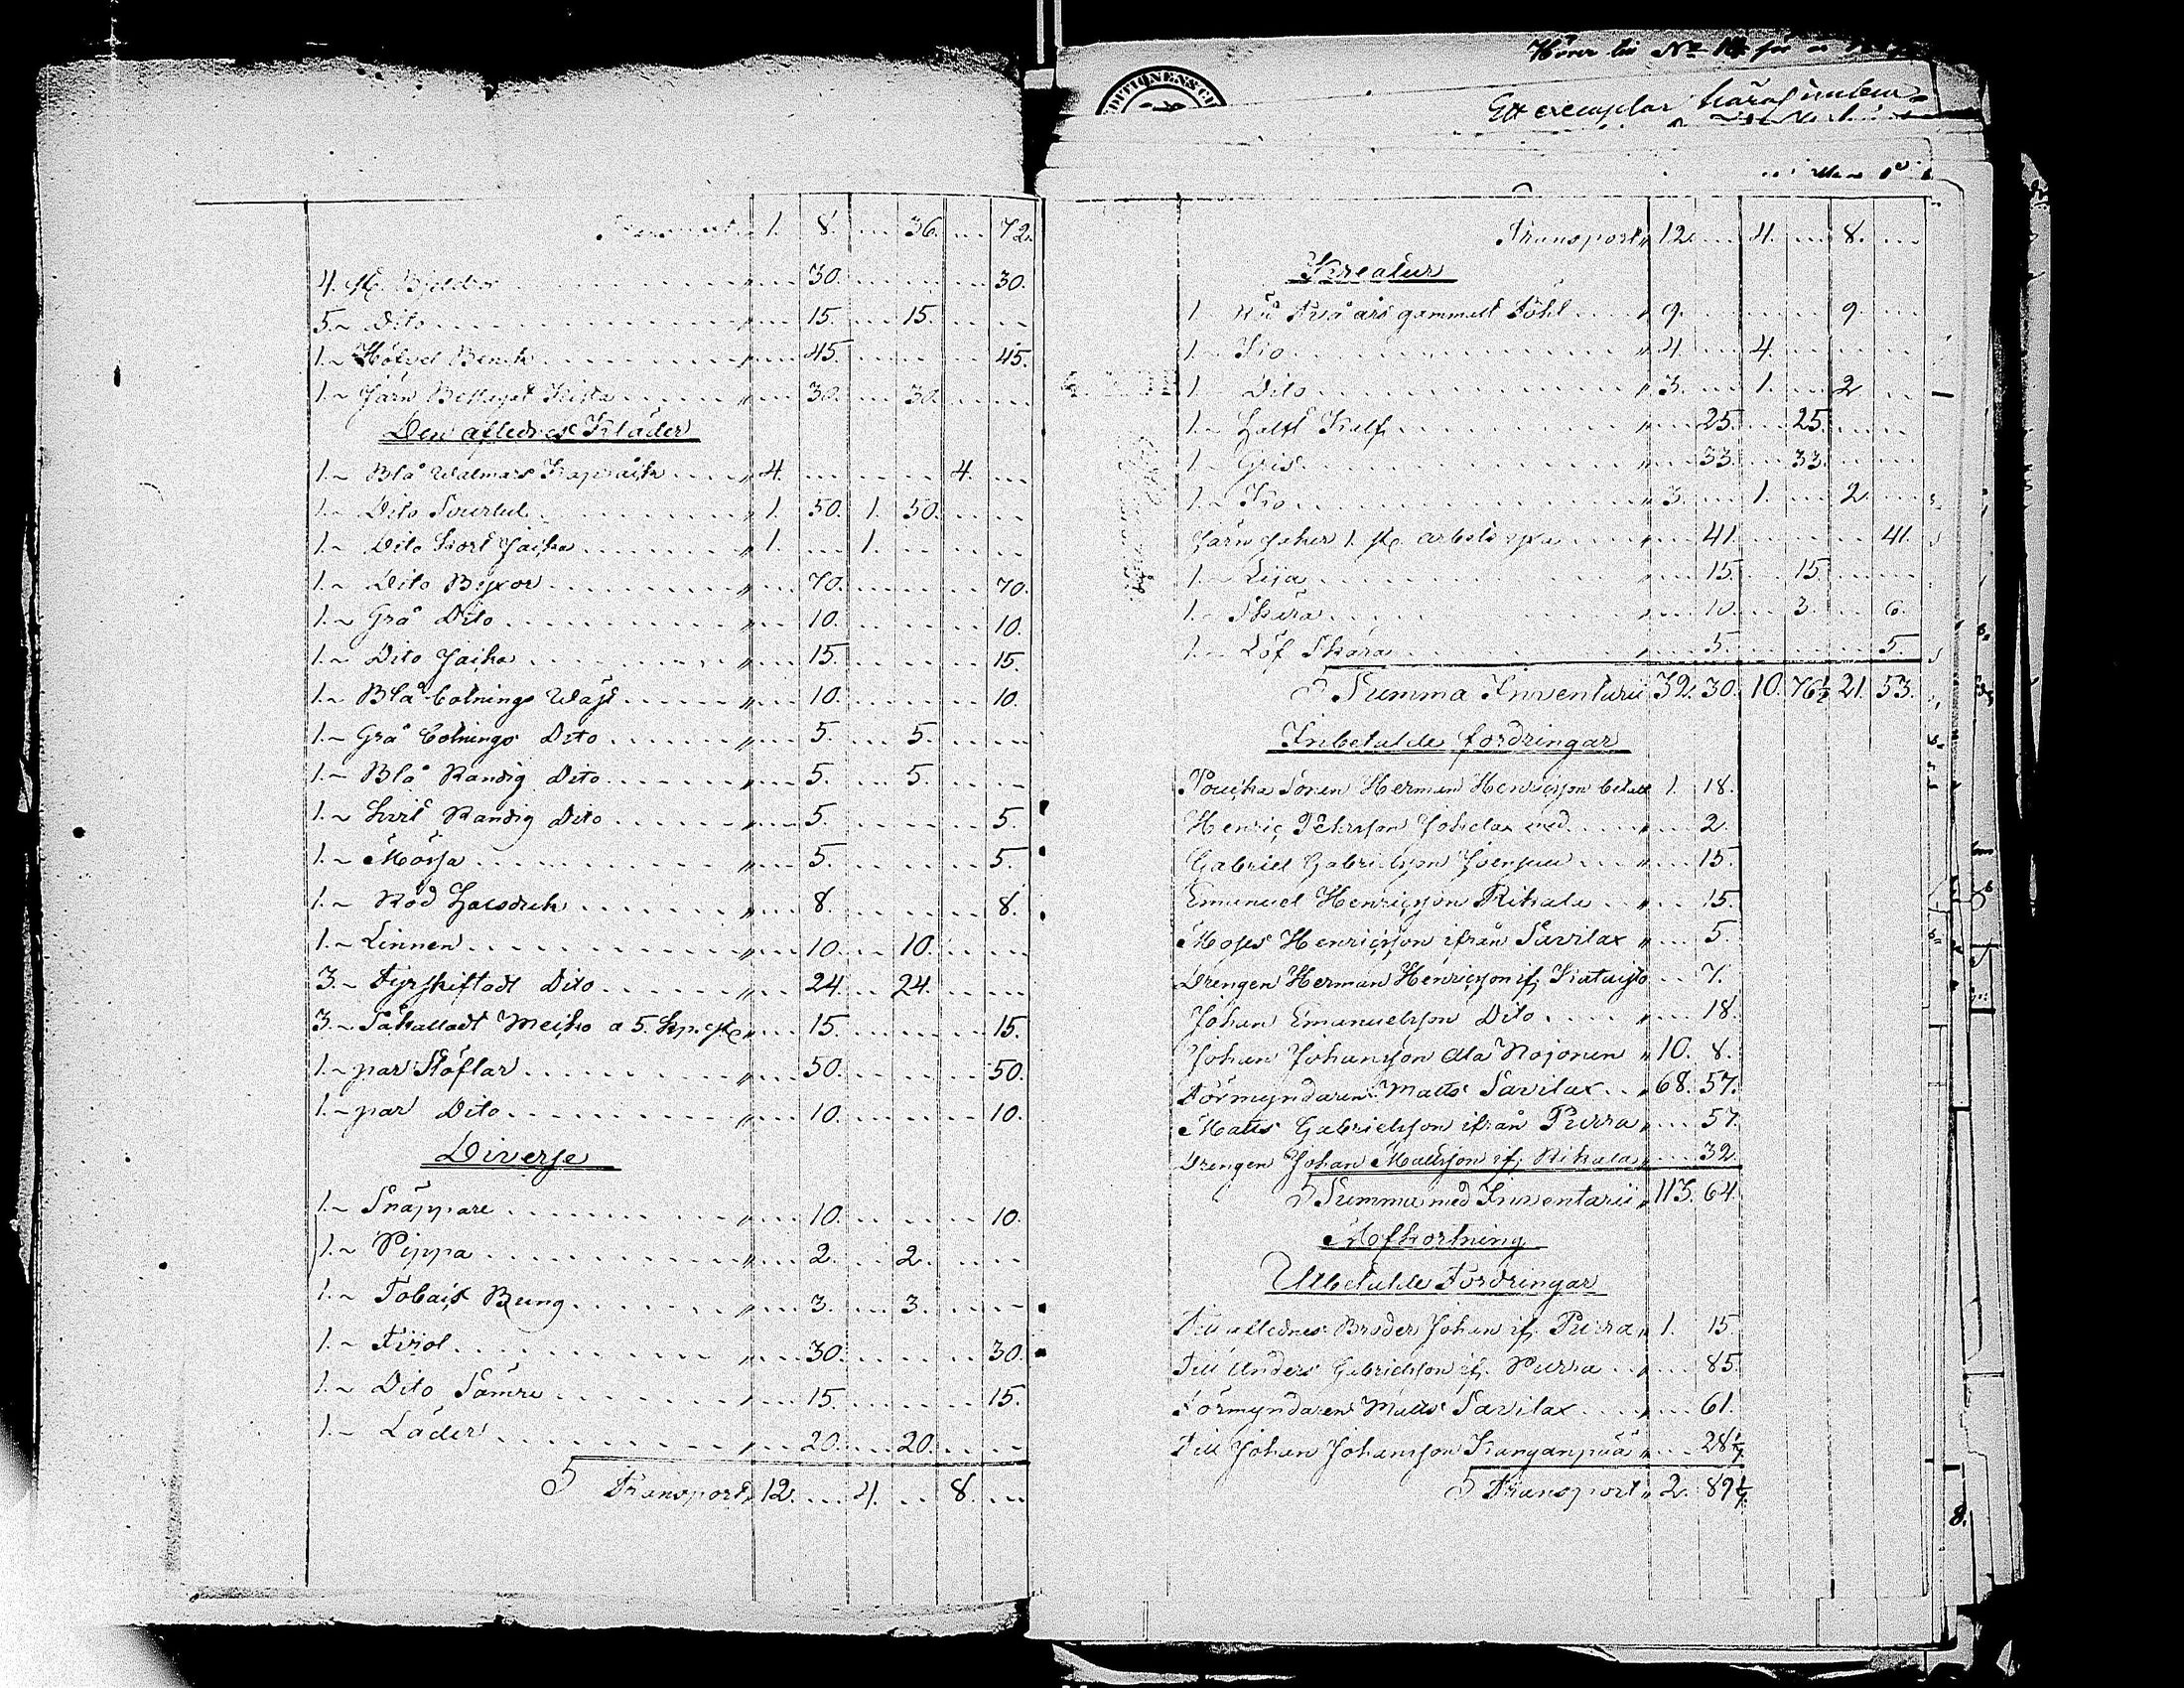 Transport „ 1. 8. 36. 72.
4. st. 30. 30.
5. ~ Dito 15. 15.
1. ~ Bänck 45. 45.
1. ~ Järn Beslagit Kista 30. 30.
Den aflednes Kläder
1. ~ Blå Walmars Kapråck 4. 4.
1. ~ Dito Sourtut 1. 50. 1. 50.
1. ~ Dito Kort Jacka 1. 1.
1. ~ Dito Byxor 70. 70.
1. ~ Grå Dito 10. 10.
1. ~ Dito Jacka 15. 15.
1. ~ Blå Cotnings Wäst 10. 10.
1. ~ Grå Cotnings Dito 5. 5.
1. ~ Blå Randig Dito 5. 5.
1. ~ Hvit Randig Dito 5. 5.
1. ~ Mössa 5. 5.
1. ~ Röd Halsduk 8. 8.
1. ~ Linnen 10. 10.
3. ~ Fyrskiftadt Dito 24. 24.
3. ~ Såkalladt Meiko a 5. kp. st. 15. 15.
1. ~ par Stöflar 50. 50.
1. ~ par Dito 10. 10.
Diverse
1. ~ Snäppare 10. 10.
1. ~ Pippa 2. 2.
1. ~ Tobacks Pung 3. 3.
1. ~ Fiiol 30. 30.
1. ~ Dito Sämre 15. 15.
1. ~ Läder 20. 20.
Transport „ 12. 4. 8.
Ett exemplar häraf
Transport „ 12. 4. 8.
Kreatur
1. Två års gammalt Föhl 9. 9.
1. ~ Ko 4. 4.
1. ~ Dito 3. 1. 2.
1. ~ Kalf 25. 25.
1. ~ Gris 33. 33.
1. ~ Ko 3. 1. 2.
Järn saker 1. st. arbets yxa 41. 41.
1. ~ Lija 15. 15.
1. ~ Skära 10. 3. 6.
1. ~ Löf Skära 5. 5.
Summa Inventarii 32. 30. 10. 76½ 21. 53.
Inbetalde fordringar
Sonen Herman Henricsson betalt 1. 18.
Henric Pehrsson 2.
Gabriel Gabrielsson 15.
Emanuel Henricsson Rikala 15.
Moses Henricsson ifrån Savilax „ 5.
Drengen Herman Henricsson if. Kataisto 7.
Johan Emanuelsson Dito 18.
Johan Johansson Ala Nojonen „ 10. 8.
Förmyndaren Matts Savilax 68. 57.
Matts Gabrielsson ifrån Purra „ 57.
Drengen Johan Mattsson if. Rikala 32
Summa med Inventarii „ 113. 64.
Afkortning
Utbetalde Fordringar
Till aflednes Broder Johan if. Purra „ 1. 15.
Till Anders Gabrielsson if. Purra 85.
Förmyndaren Matts Savilax 61.
Till Johan Johansson Kanganpää „ 28 1/7
Transport „ 2. 89 1/7
8.